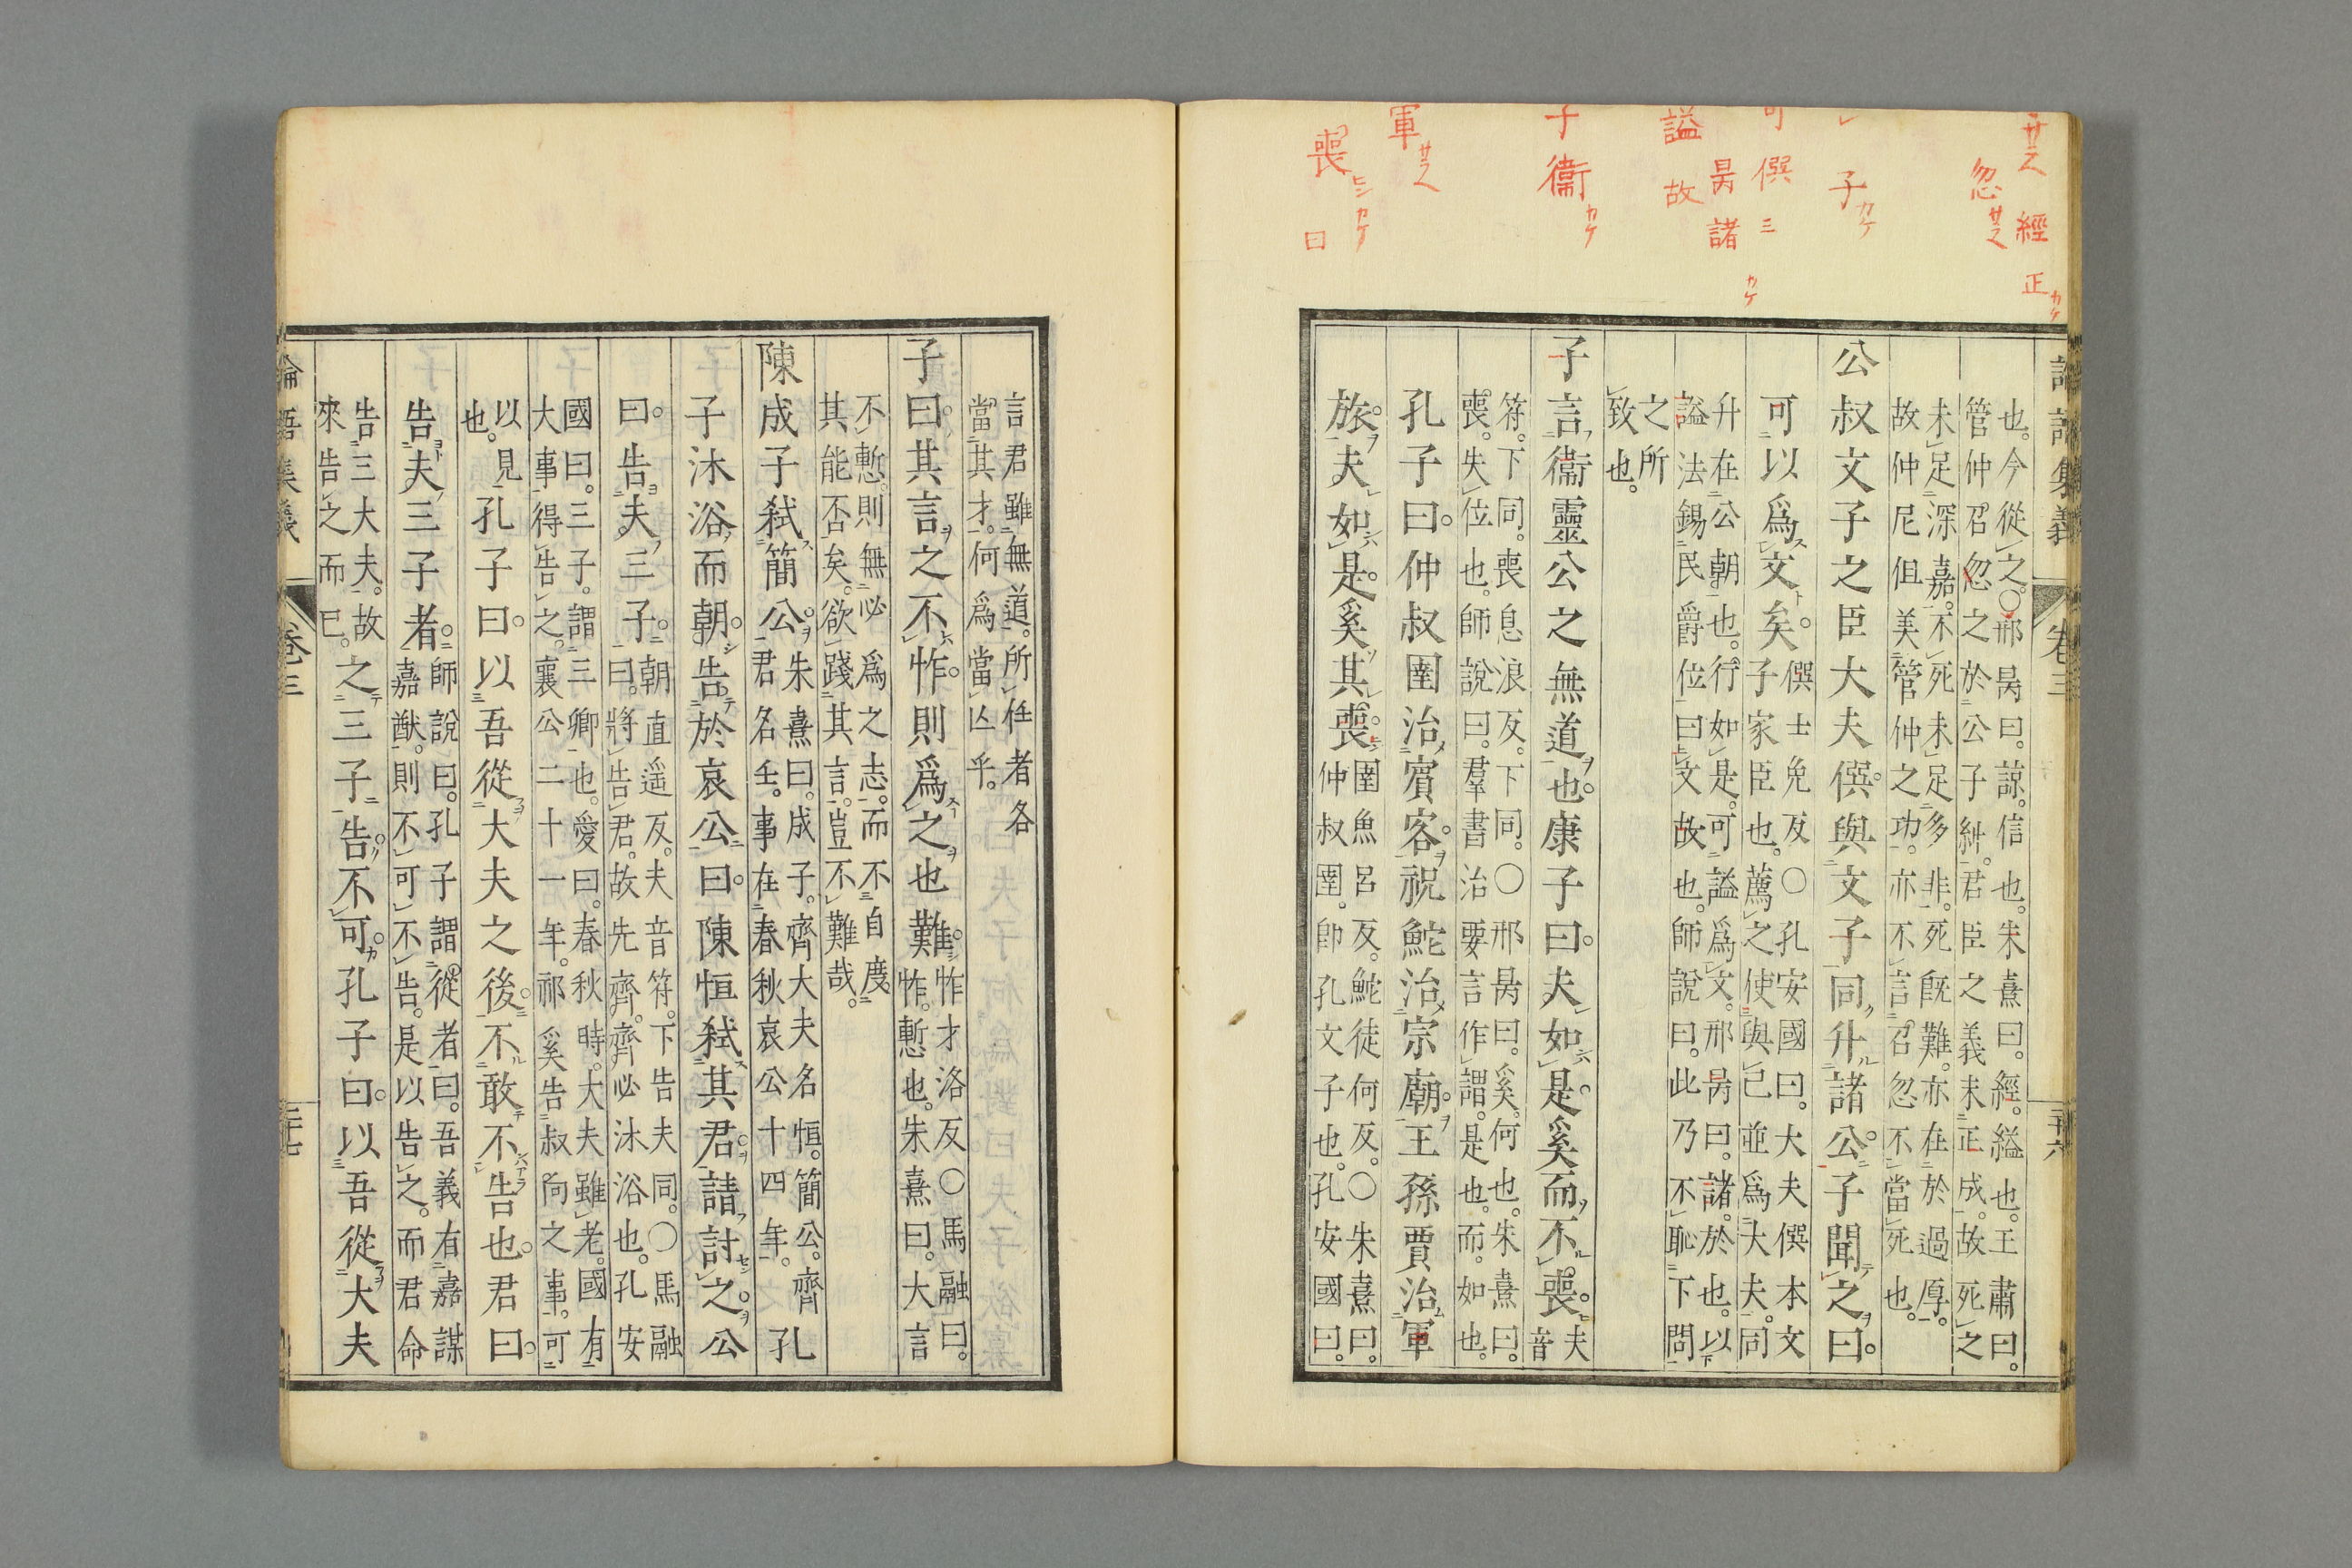 正 經 忽 子 可 僎 三 昺 諸 謚 故 子 衞 軍 喪 曰
卷三
也。今從之。○邢昺曰。諒。信也。朱熹曰。經。縊也。王肅曰。
管仲召忽之於公子糾。君臣之義未正成。故死之
未足深嘉。不死未足多非。死既難。亦在於過厚。
故仲尼但美管仲之功。亦不言召忽不當死也。
公叔文子之臣大夫僎與文子同升諸公。子聞之曰。
可以爲文矣。
僎士免反○孔安國曰。大夫僎本文
子家臣也。薦之使與己並爲大夫。同
升在公朝也。行如是。可謚爲文。邢昺曰。諸。於也。以
謚法錫民爵位曰文故也。師說曰。此乃不恥下問
之所
致也。
子言衞靈公之無道也。康子曰。夫如是。奚而不喪。
夫音
符。下同。喪息浪反。下同。○邢昺曰。奚。何也。朱熹曰。
喪。失位也。師說曰。羣書治要言作謂。是也。而。如也。
孔子曰。仲叔圉治賓客。祝鮀治宗廟。王孫賈治軍
旅。夫如是。奚其喪。
圉魚呂反。鮀徒何反。○朱熹曰。
仲叔圉。卽孔文子也。孔安國曰。
言君雖無道。所任者各
當其才。何爲當亾乎。
子曰。其言之不怍。則爲之也難。
怍才洛反○馬融曰。
怍。慙也。朱熹曰。大言
不慙。則無必爲之志。而不自度
其能否矣。欲踐其言。豈不難哉。
陳成子弑簡公。
朱熹曰。成子。齊大夫名恒。簡公。齊
君名壬。事在春秋哀公十四年。
孔
子沐浴而朝。告於哀公曰。陳恒弑其君。請討之。公
曰。告夫三子。
朝直遥反。夫音符。下告夫同。○馬融
曰。將告君。故先齊。齊必沐浴也。孔安
國曰。三子。謂三卿也。愛曰。春秋時。大夫雖老。國有
大事。得告之。襄公二十一年。祁奚告叔向之事。可
以見
也。
孔子曰。以吾從大夫之後。不敢不告也。君曰。
告夫三子者。
師說曰。孔子謂。從者曰。吾義有嘉謀
嘉猷。則不可不告。是以告之。而君命
告三大夫。故
來告之而已。
之三子告。不可。孔子曰。以吾從大夫
論語集義
卷三